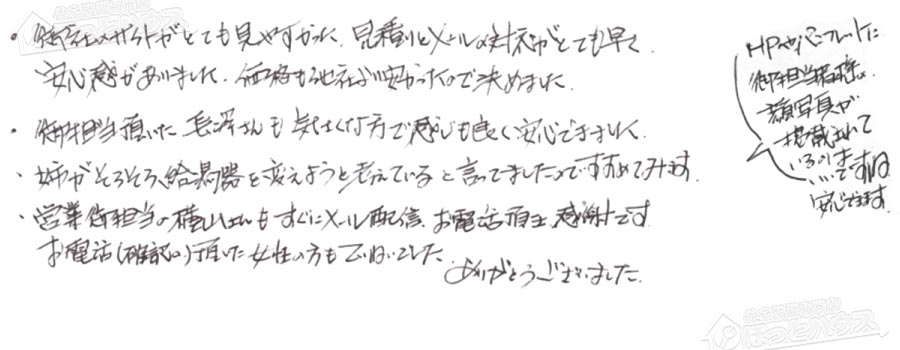 ・御社のサイトがとても見やすかった、見積りとメールの対応がとても早く
安心感がありました。価格も他社より安かったので決めました
・御担当頂いた 毛澤さんも 気さくな方で感じも良く安心できました。
・姉がそろそろ給湯器を変えようと考えていると言ってましたのですすめてみます
・営業御担当の さんもすぐにメール配信、お電話頂き、感謝です
お電話(確認の)頂いた女性の方もていねいでした
ありがとうございました。
HPやパンフレットに
御担当者様の
顔写真が
掲載されて
いるのは
いいですね
安心できます。
給湯設備専門店
ほっとハウス